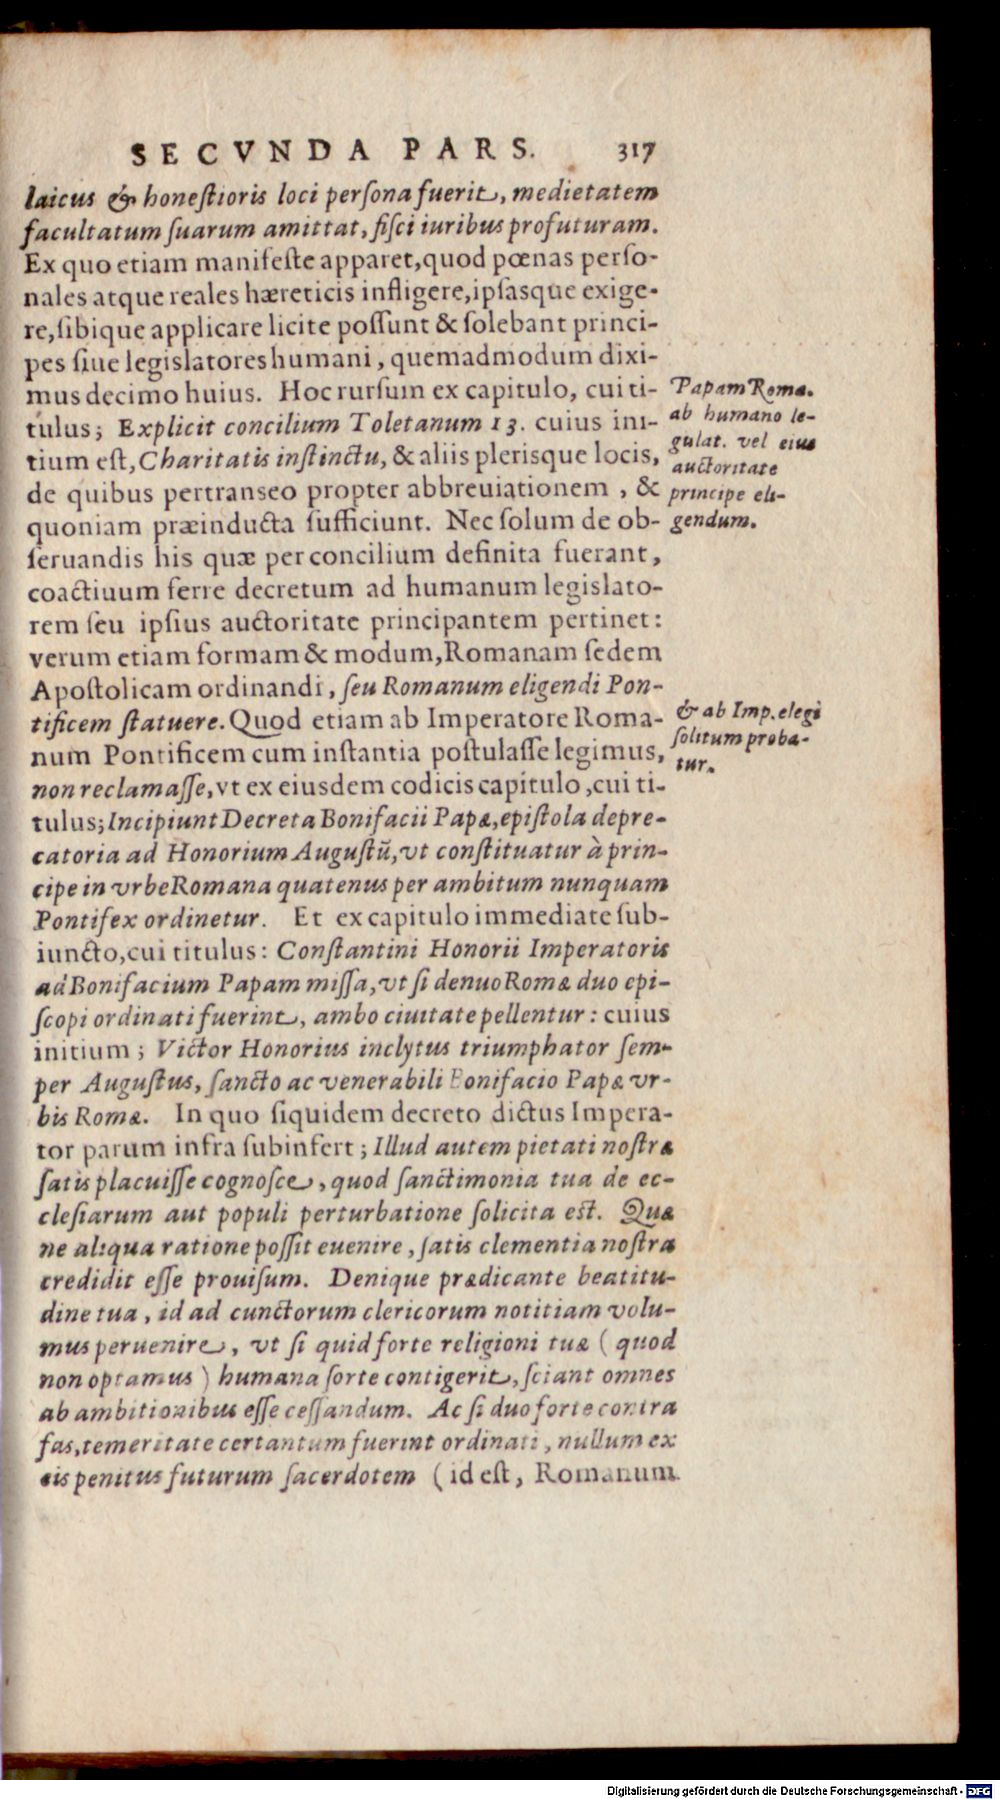 SECVNDA PARS. 317
laicus & honeſtioris loci perſona fuerit, medietatem
facultatum ſuarum amittat, fiſci iuribus profuturam.
Ex quo etiam manifeſte apparet, quod pœnas perſo-
nales atque reales hæreticis infligere, ipſasque exige-
re, ſibique applicare licite poſſunt & ſolebant princi-
pes ſiue legislatores humani, quemadmodum dixi-
mus decimo huius. Hoc rurſum ex capitulo, cui ti-
tulus; Explicit concilium Toletanum 13. cuius ini-
tium eſt, Charitatis inſtinctu, & aliis plerisque locis,
de quibus pertranseo propter abbreuiationem, &
quoniam præinducta ſufficiunt. Nec ſolum de ob-
ſeruandis his quæ per concilium definita fuerant,
coactiuum ferre decretum ad humanum legislato-
rem ſeu ipſius auctoritate principantem pertinet:
verum etiam formam & modum, Romanam ſedem
Apoſtolicam ordinandi, ſeu Romanum eligendi Pon-
tificem ſtatuere. Quod etiam ab Imperatore Roma-
num Pontificem cum inſtantia poſtulaſſe legimus,
non reclamaſſe, vt ex eiusdem codicis capitulo, cui ti-
tulus; Incipiunt Decreta Bonifacii Papæ, epiſtola depre-
catoria ad Honorium Auguſtū, vt conſtituatur à prin-
cipe in vrbe Romana quatenus per ambitum nunquam
Pontifex ordinetur. Et ex capitulo immediate ſub-
iuncto, cui titulus: Conſtantini Honorii Imperatoris
ad Bonifacium Papam miſſa, vt ſi denuo Romæ duo epi-
ſcopi ordinati fuerint, ambo ciuitate pellentur: cuius
initium; Victor Honorius inclytus triumphator ſem-
per Auguſtus, ſancto ac venerabili Bonifacio Papæ vr-
bis Romæ. In quo ſiquidem decreto dictus Impera-
tor parum infra ſubinfert; Illud autem pietati noſtræ
ſatis placuiſſe cognoſce, quod ſanctimonia tua de ec-
cleſiarum aut populi perturbatione ſolicita eſt. Quæ
ne aliqua ratione poſſit euenire, ſatis clementia noſtra
credidit eſſe prouiſum. Denique prædicante beatitu-
dine tua, id ad cunctorum clericorum notitiam volu-
mus peruenire, vt ſi quid forte religioni tuæ (quod
non optamus) humana ſorte contigerit, ſciant omnes
ab ambitionibus eſſe ceſſandum. Ac ſi duo forte contra
fas, temeritate certantum fuerint ordinati, nullum ex
eis penitus futurum ſacerdotem (id eſt, Romanum
Papam Roma.
ab humano le-
gulat. vel eius
auctoritate
principe eli-
gendum.
& ab Imp. elegi
ſolitum proba-
tur.
Digitalisierung gefördert durch die Deutsche Forschungsgemeinschaft - DFG